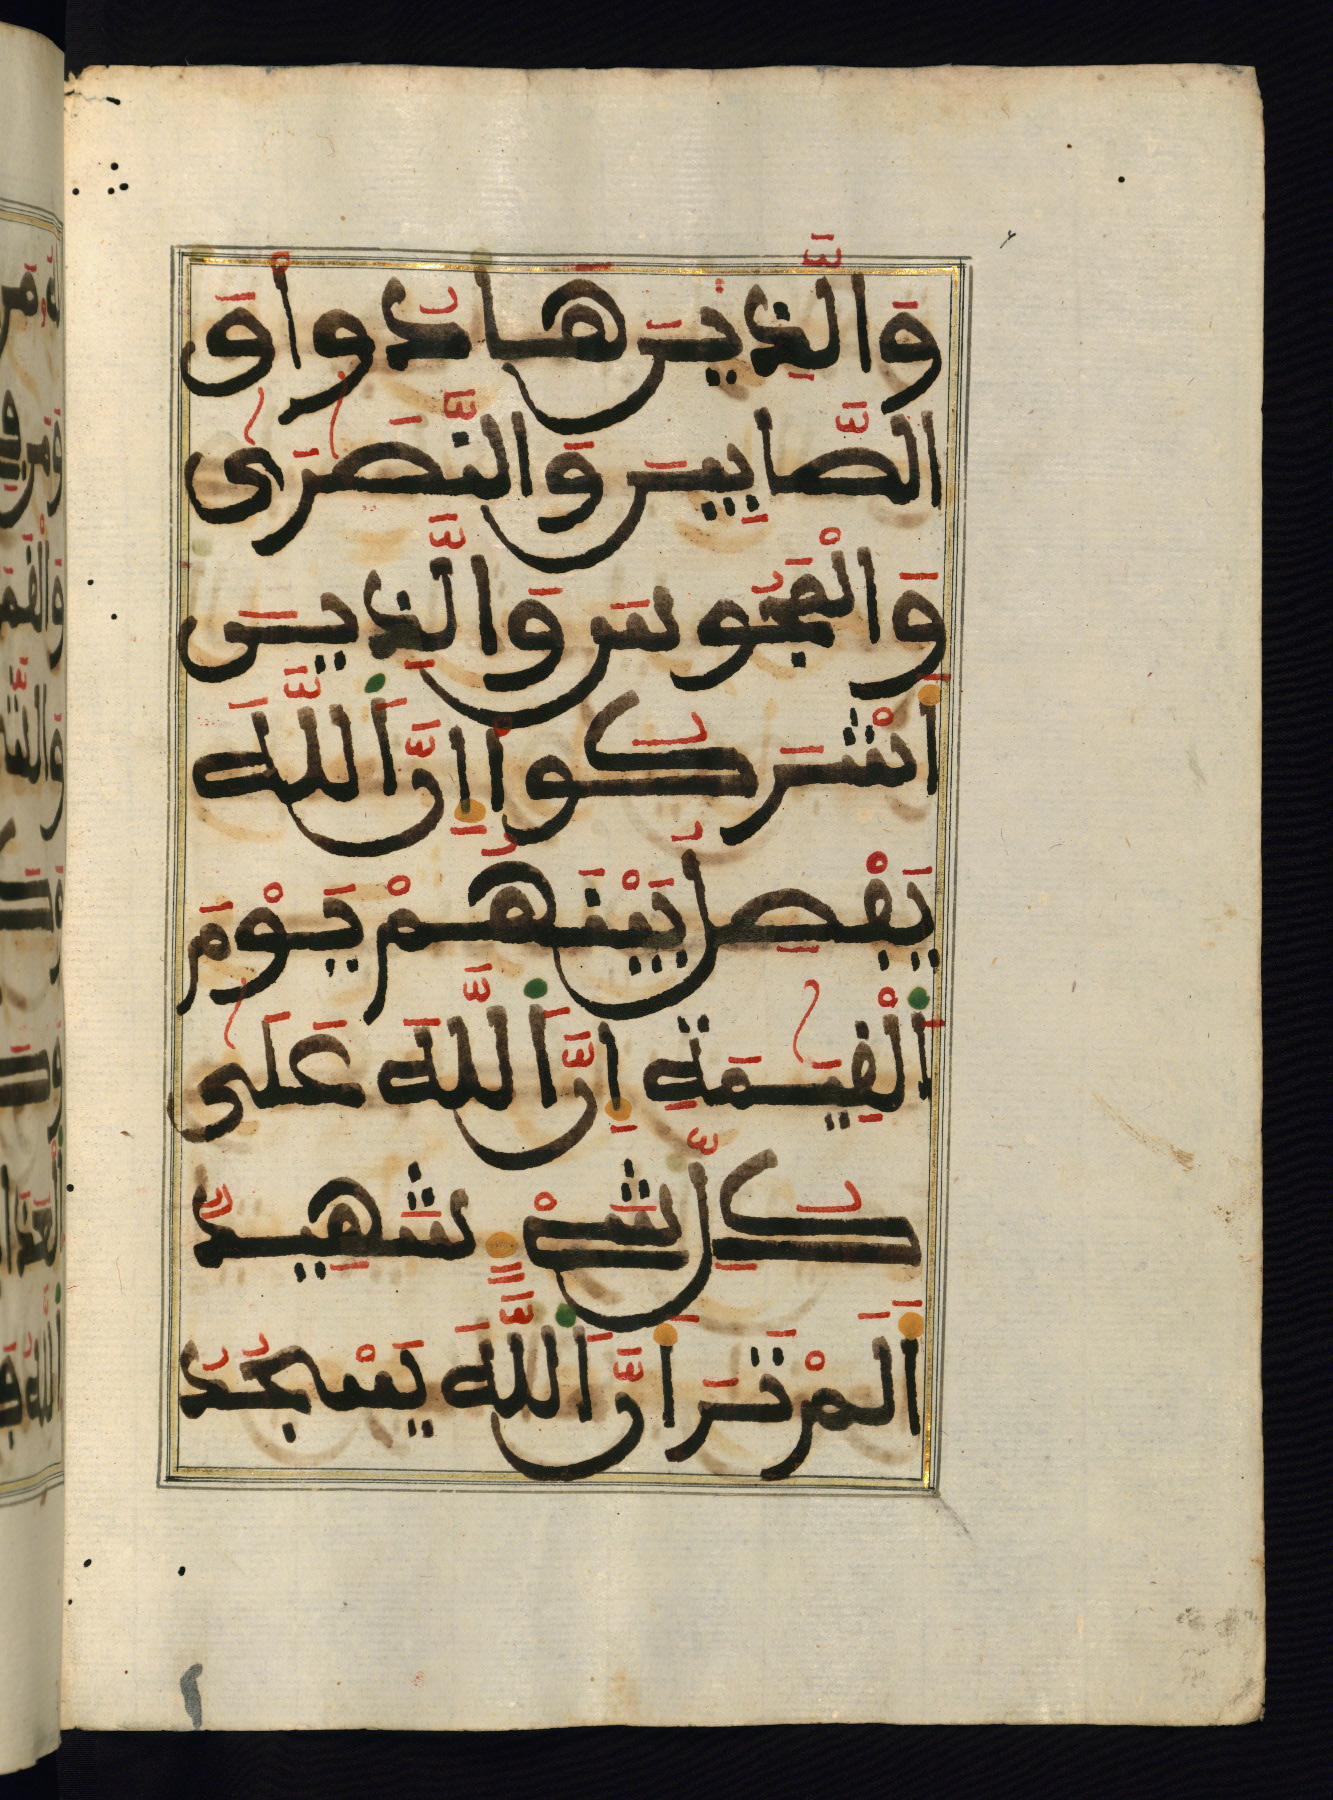 وَالَّذِينَ هَادُواْ وَ
الصَّٰبِينَ وَالنَّصَٰرَىٰ
وَالْمَجُوسَ وَالذِينَ
أَشْرَكُواْ إِنَّ اَللَّهَ
يَفْصِلُ بَيْنَهُمْ يَوْمَ
اَلْقِيَٰمَةِ إِنَّ اَللَّهَ عَلَىٰ
كُلِّ شَےْءٖ شَهِيدٌ
أَلَمْ تَرَ أَنَّ اَللَّهَ يَسْجُدُ